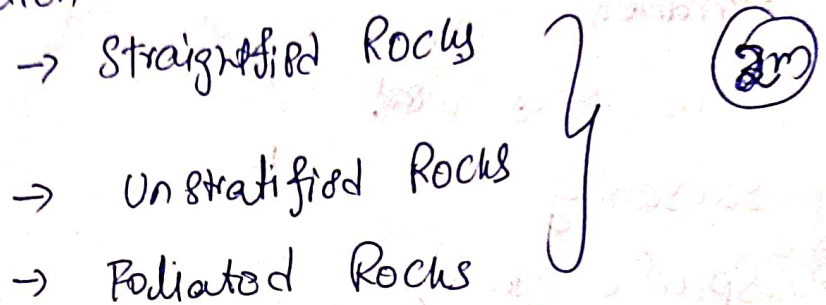 → Straightfied Rocks
→ Unstratified Rocks
→ Foliated Rocks
2m